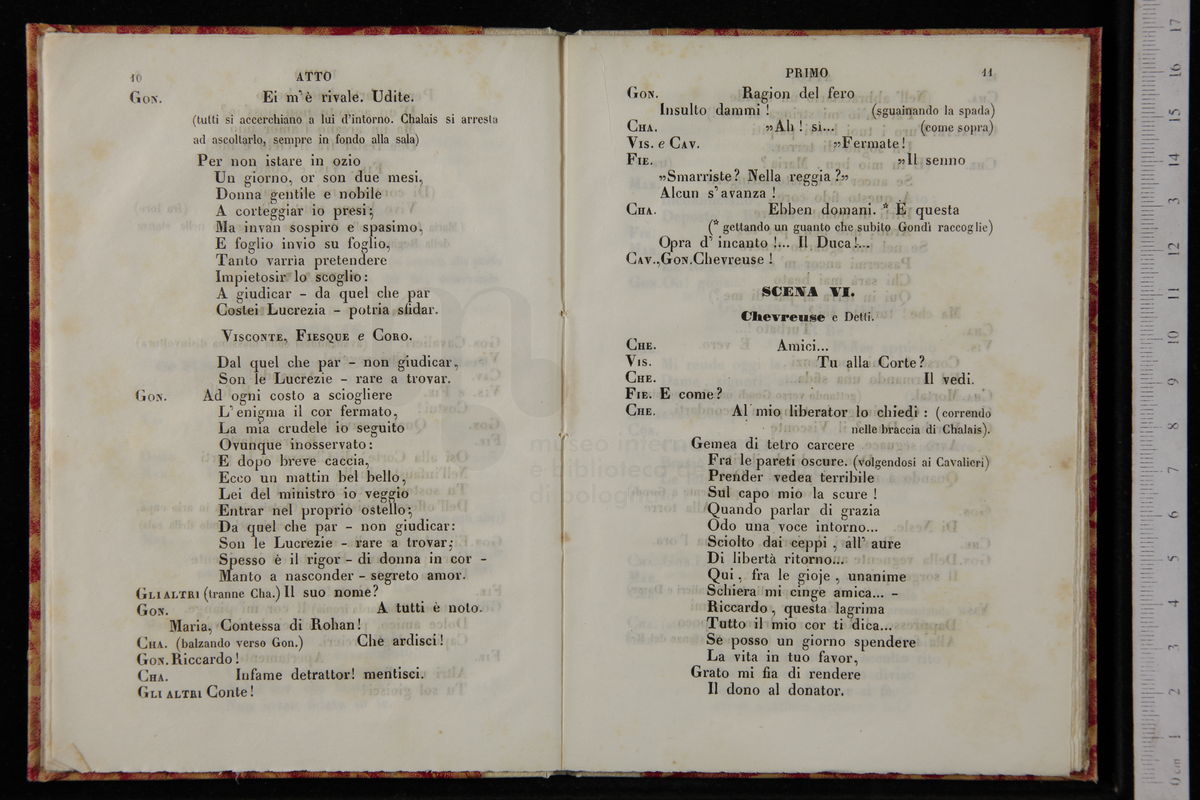 10 ATTO
Gon. Ei m'è rivale. Udite.
(tutti si accerchiano a lui d'intorno. Chalais si arresta
ad ascoltarlo, sempre in fondo alla sala)
Per non istare in ozio
Un giorno, or son due mesi,
Donna gentile e nobile
A corteggiar io presi;
Ma invan sospiro e spasimo,
E foglio invio su foglio,
Tanto varria pretendere
Impietosir lo scoglio:
A giudicar - da quel che par
Costei Lucrezia - potria sfidar.
Visconte, Fiesque e Coro.
Dal quel che par - non giudicar,
Son le Lucrezie - rare a trovar.
Gon. Ad ogni costo a sciogliere
L'enigma il cor fermato,
La mia crudele io seguito
Ovunque inosservato:
E dopo breve caccia,
Ecco un mattin bel bello,
Lei del ministro io veggio
Entrar nel proprio ostello;
Da quel che par - non giudicar:
Son le Lucrezie - rare a trovar;
Spesso è il rigor - di donna in cor -
Manto a nasconder - segreto amor.
Gli altri (tranne Cha.) Il suo nome?
Gon. A tutti è noto.
Maria, Contessa di Rohan!
Cha. (balzando verso Gon.) Che ardisci!
Gon. Riccardo!
Cha. Infame detrattor! mentisci.
Gli altri Conte!
PRIMO 11
Gon. Ragion del fero
Insulto dammi! (sguainando la spada)
Cha. »Ah! sì... (come sopra)
Vis. e Cav. »Fermate!
Fie. »Il senno
»Smarriste? Nella reggia?»
Alcun s'avanza!
Cha. Ebben domani. * E questa
(* gettando un guanto che subito Gondì raccoglie)
Opra d'incanto!... Il Duca!...
Cav.,Gon. Chevreuse!
SCENA VI.
Chevreuse e Detti.
Che. Amici...
Vis. Tu alla Corte?
Che. Il vedi.
Fie. E come?
Che. Al mio liberator lo chiedi: (correndo
nelle braccia di Chalais).
Gemea di tetro carcere
Fra le pareti oscure. (volgendosi ai Cavalieri)
Prender vedea terribile
Sul capo mio la scure!
Quando parlar di grazia
Odo una voce intorno...
Sciolto dai ceppi, all'aure
Di libertà ritorno...
Qui, fra le gioje, unanime
Schiera mi cinge amica... -
Riccardo, questa lagrima
Tutto il mio cor ti dica...
Se posso un giorno spendere
La vita in tuo favor,
Grato mi fia di rendere
Il dono al donator.